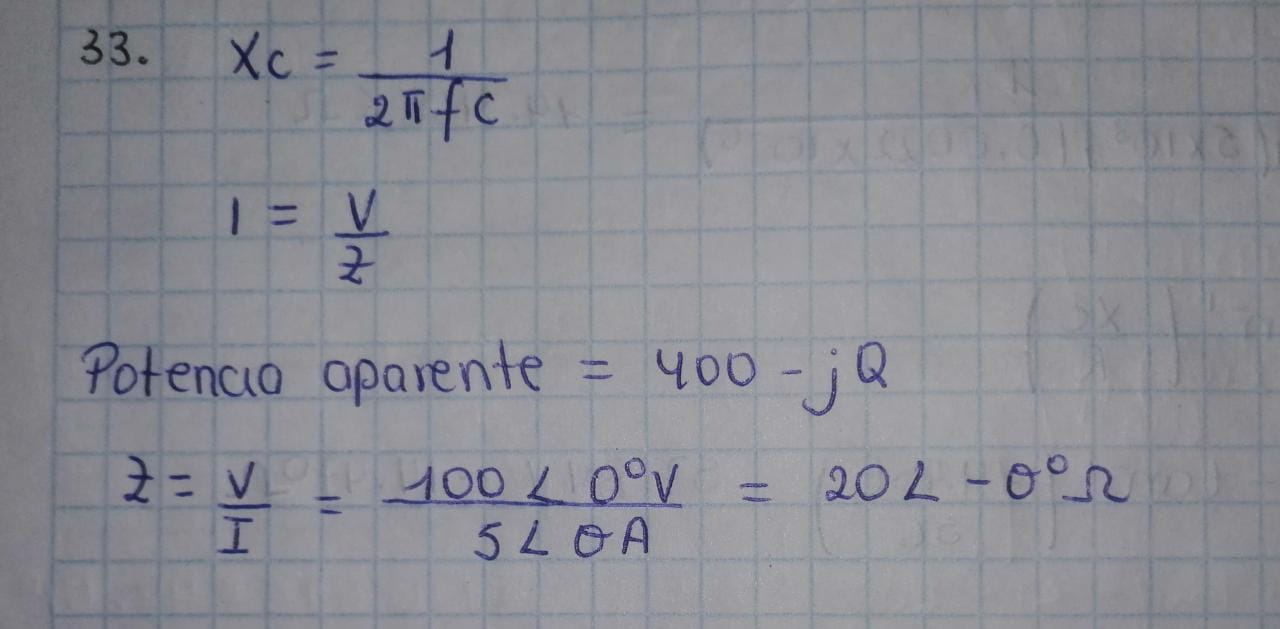 33. Xc = 1 / 2πfC
I = V / Z
Potencia aparente = 400 - jQ
Z = V / I = 100∠0°V / 5∠θA = 20∠-θ°Ω